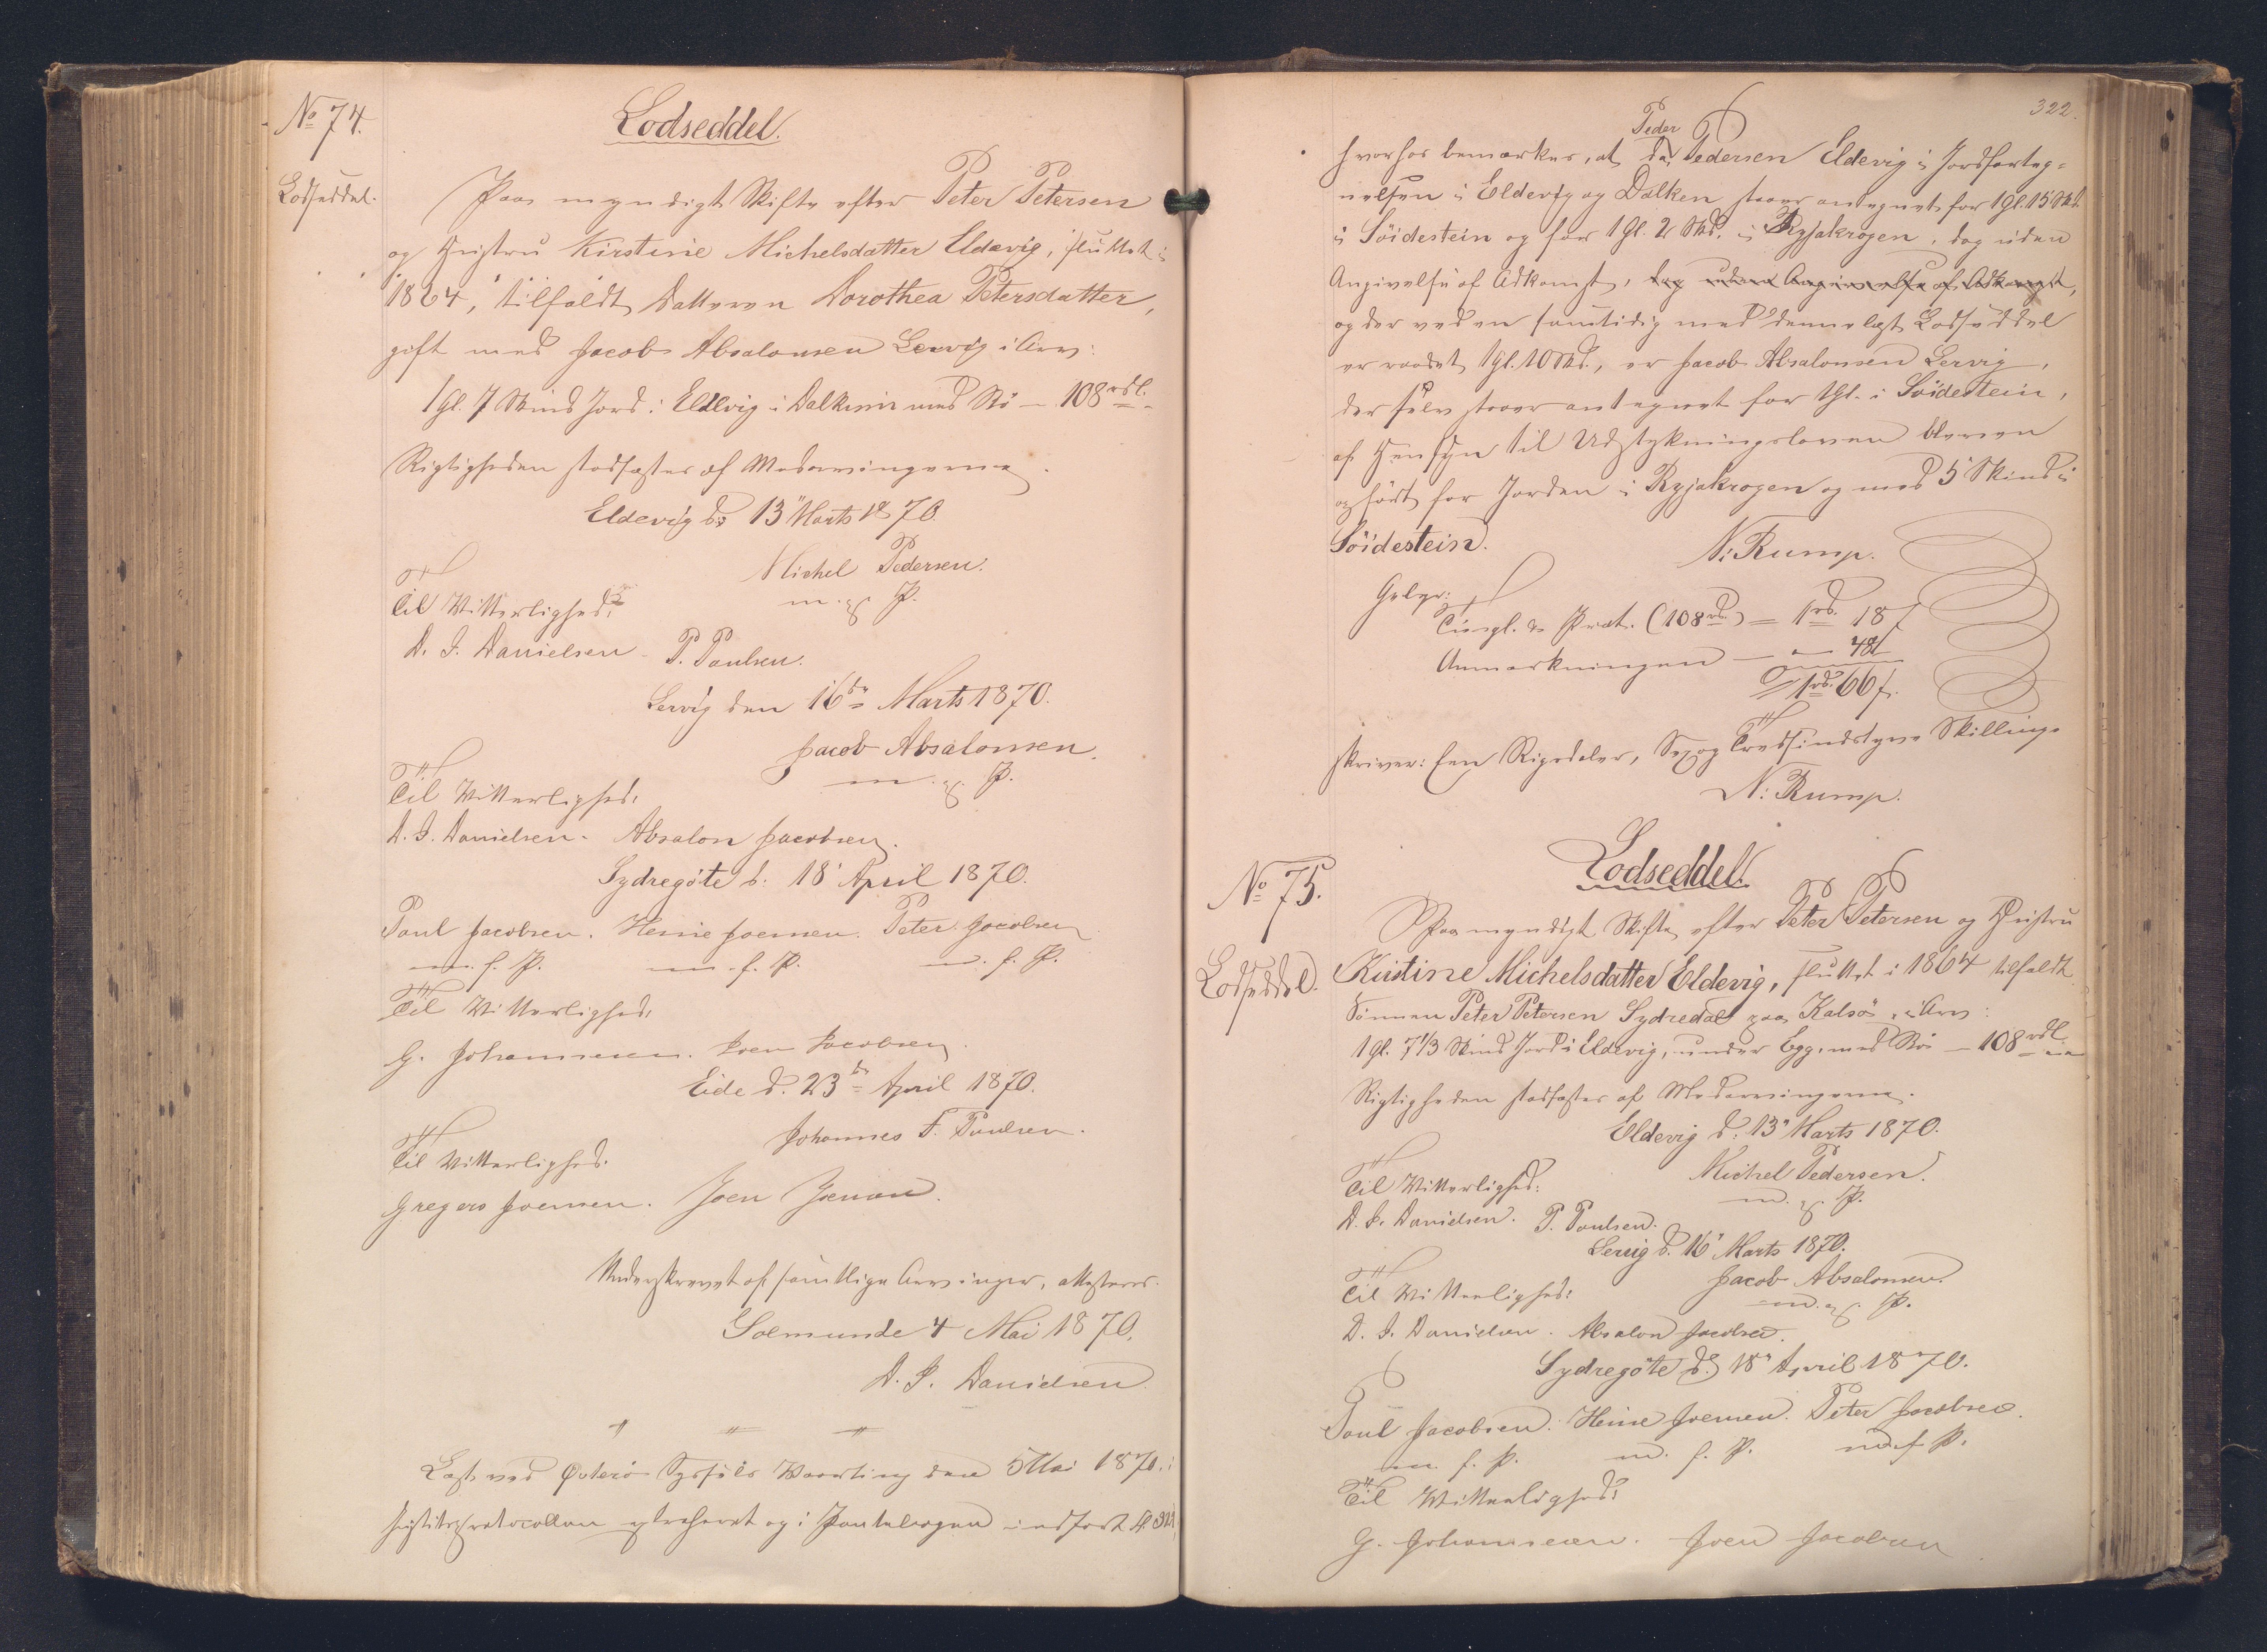 No 74.
Lodseddel.
Lodseddel.
Paa myndigt Skifte efter Peter Petersen
og Hustru Kirstine Michelsdatter Eldevig, sluttet i
1864, tilfaldt Datteren Dorothea Petersdatter,
gift med Jacob Absalonsen Lervig i Arv:
1 Gl. 7 Skind Jord i Eldevig i Dalkinni med Stö — 108 rdl.
Rigtigheden stadfæstes af Medarvingerne.
Eldevig d: 13 Marts 1870.
Michel Pedersen.
m. g. P.
Til Vitterlighed:
D. J. Danielsen P. Poulsen.
Lervig den 16de Marts 1870.
Jacob Absalonsen.
m. g. P.
Til Vitterlighed:
D. J. Danielsen. Absalon Jacobsen.
Sydregöte d: 18 April 1870.
Poul Jacobsen. Heine Joensen. Peter Jacobsen
m. f. P. m. f. P. m. f. P.
Til Vitterlighed:
G. Johannesen. Joen Jacobsen.
Eide d. 23de April 1870.
Johannes F. Poulsen.
Til Vitterlighed.
Gregers Joensen. Joen Joensen.
Underskrevet af samtlige Arvinger, attesteres.
Solmunde 4 Mai 1870.
D. J. Danielsen
" " "
Læst ved Østerø Syssels Vaarting den 5 Mai 1870. i
Justitsprotocollen extraheret og i Pantebogen indført fol. 321
322.
Peder
hvorhos bemærkes, at da Pedersen Eldevig i Jordforteg-
nelsen i Eldevig og Dalken staaer antegnet for 1 Gl. 15 Skd.
i Söidestein og for 1 Gl. 2 Skd. i Ryjakrogen, dog uden
Angivelse af Adkomst, dog uden Angivelse af Adkomst,
og der ved en samtidig med denne læst Lodseddel
er raadet 1 Gl. 10 Skd., er Jacob Absalonsen Lervig,
der selv staaer antegnet for 1 Gl. i Söidestein,
af Hensyn til Udstykningsloven bleven
opført for Jorden i Ryjakrogen og med 5 Skind i
Söidestein.
N: Rump.
Gebyr:
Tingl. & Prot. (108 rd) = 1 rd. 18 ſ
Anmærkningen — " — 48 ſ
1 rd. 66 ſ.
skriver: Een Rigsdaler, Sex og Tredsindstyve Skilling
N: Rump.
No 75.
Lodseddel.
Lodseddel.
Paa myndigt Skifte efter Peter Petersen og Hustru
Kistine Michelsdatter Eldevig, sluttet i 1864 tilfaldt
Sönnen Peter Petersen Sydredal paa Kalsö, i Arv:
1 Gl. 7 1/3 Skind Jord i Eldevig, under Egg, med Stö — 108 rdl.
Rigtigheden stadfæstes af Medarvingerne.
Eldevig d. 13 Marts 1870.
Michel Pedersen.
m. g. P.
Til Vitterlighed:
D. J. Danielsen. P. Poulsen.
Lervig d. 16 Marts 1870.
Jacob Absalonsen.
m. g. P.
Til Vitterlighed:
D. J. Danielsen. Absalon Jacobsen.
Sydregöte d. 18 April 1870.
Poul Jacobsen. Heine Joensen. Peter Jacobsen.
m. f. P. m. f. P. m. f. P.
Til Vitterlighed:
G. Johannesen. Joen Jacobsen